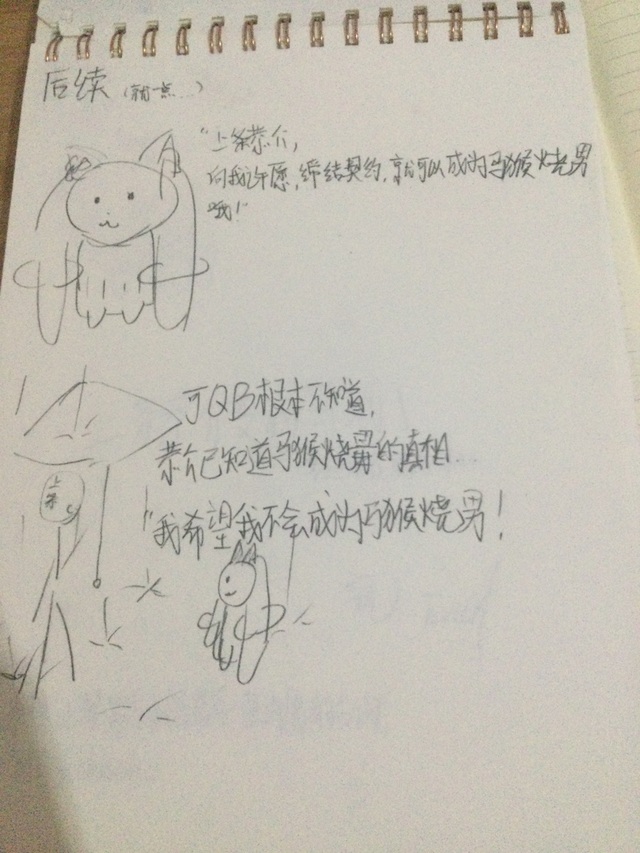 后续（稍一点…）
"上条恭介，
向我许愿，缔结契约，就可以成为马猴烧男
哦！"
可QB根本不知道，
恭介已知道马猴烧男的真相…
"我希望我不会成为马猴烧男！
上条